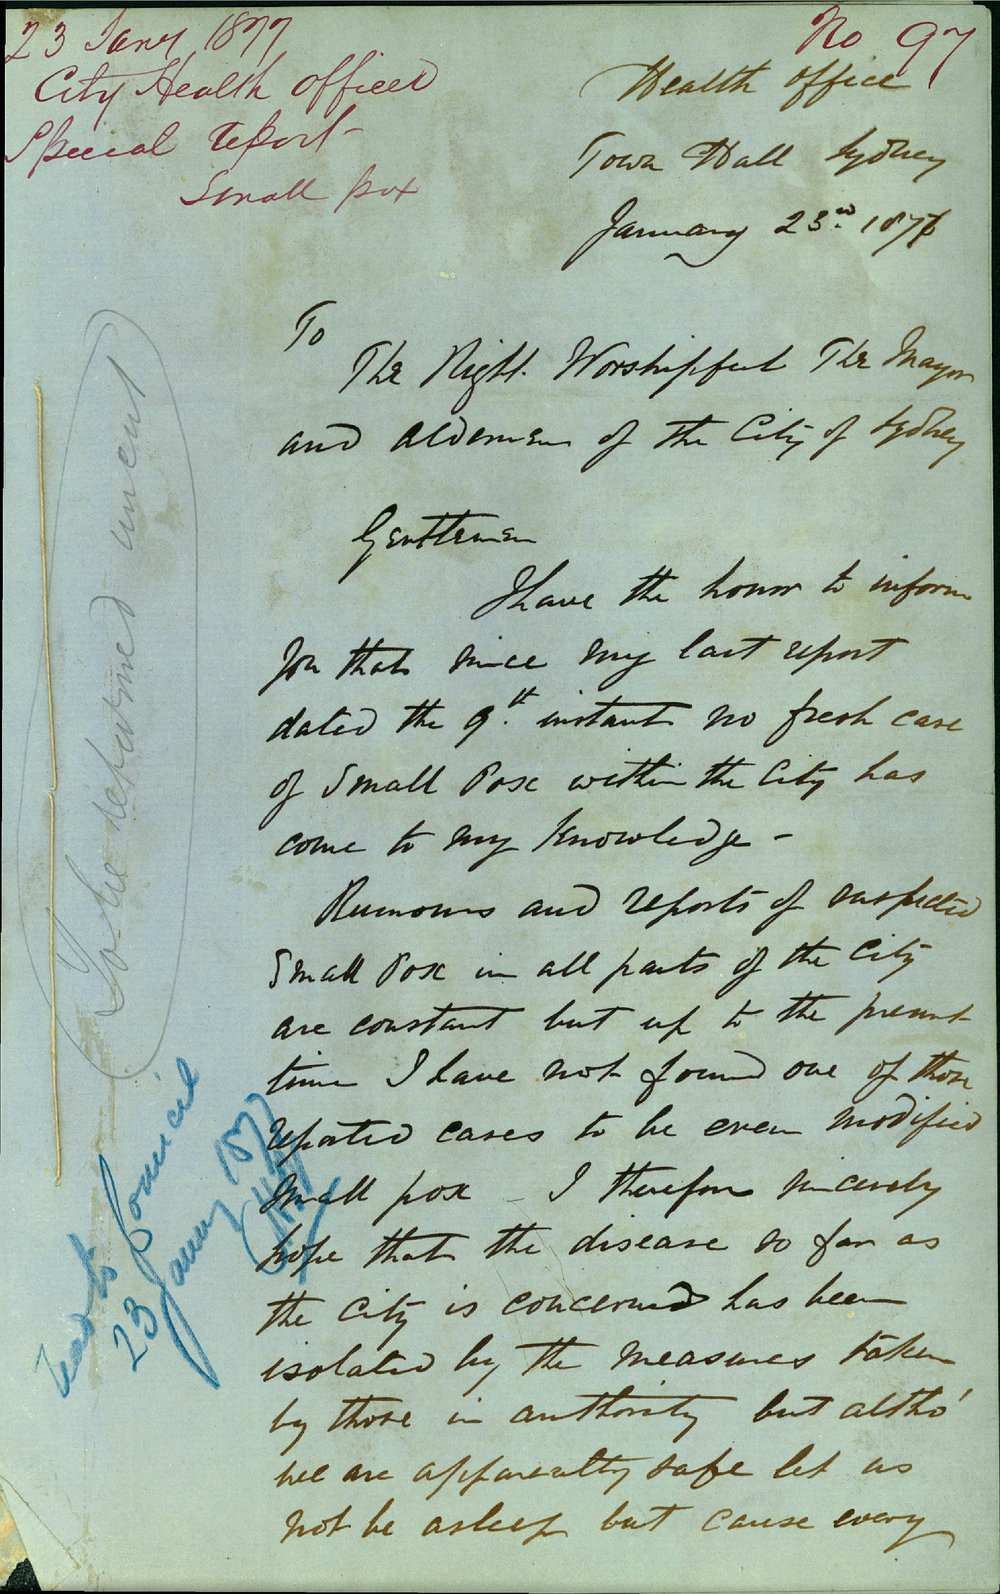 23 Jany 1877
City Health Officer
Special report
Small pox
No 97
Health Office
Town Hall Sydney
January 23rd. 1877
To
The Right Worshipful The Mayor
and Aldermen of the City of Sydney
Gentlemen
I have the honor to inform
you that since my last report
dated the 9th. instant no fresh case
of Small Pox within the City has
come to my knowledge –
Rumours and reports of suspected
Small Pox in all parts of the City
are constant but up to the present
time I have not found one of those
reported cases to be even modified
Small pox – I therefore sincerely
hope that the disease so far as
the City is concerned has been
isolated by the measures taken
by those in authority but altho'
we are apparently safe let us
not be asleep but cause every
To be returned
Read to Council
23 January 1877